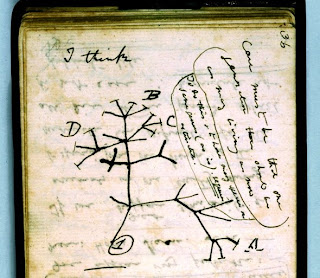 36
I think
Case must be that one
generation then should be
as many living as now
To do this & to have many species in
same genus (as is) requires
extinction
B
C
D
A
1